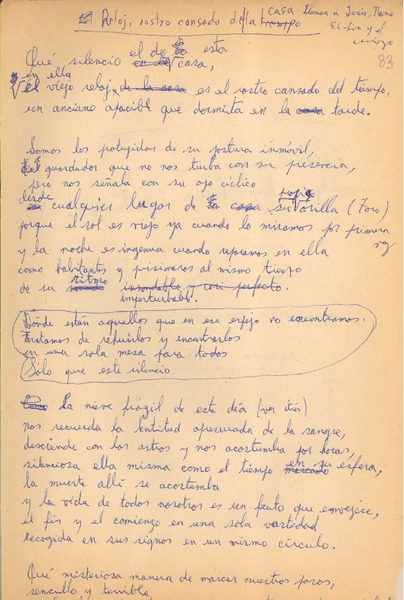 Reloj, rostro cansado de la casa
tiempo
Llamar a Iván, Mario
El fin y el
comienzo
83
Qué silencio el de esta
en ella casa,
el viejo reloj, de la casa es el rostro cansado del tiempo,
un anciano apacible que dormita en la casa tarde.
Somos los protegidos de su postura inmóvil,
guardador que no nos turba con su presencia,
pero nos señala con su ojo cíclico
desde cualquier lugar de la casa su propia orilla (Foro)
porque el sol es viejo ya cuando lo miramos por primera
vez
y la noche es ingenua cuando reposamos en ella
como habitantes y prisioneros al mismo tiempo
de su ritmo insondable y casi perfecto.
imperturbable.
Dónde están aquellos que en ese espejo no encontramos.
Tratamos de reunirlos y encontrarlos
en una sola mesa para todos
Sólo que este silencio
la nieve frágil de este día
nos recuerda la lentitud apresurada de la sangre,
desciende con los astros y nos acostumbra por horas,
silenciosa ella misma como el tiempo marcado en su esfera,
la muerte allí se acostumbra
y la vida de todos nosotros es un fruto que envejece,
el fin y el comienzo en una sola vastedad
recogida en sus signos en un mismo círculo.
Qué misteriosa manera de marcar nuestros pasos,
sencillo y terrible